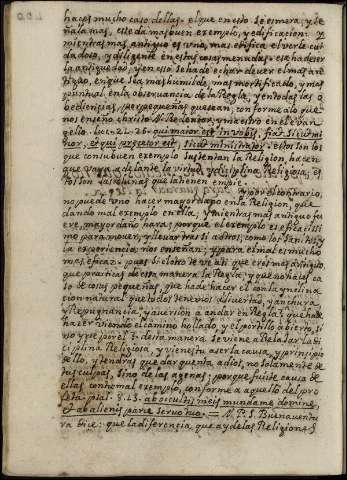 haçer mucho caso dellas. el que en esto se esmera, y se
señala mas, esse da mas buen exemplo, y edificacion: y
mientras mas antiguo es uno, mas edifica el verle cui
dadoso, y diligente en estas cosas menudas. essa ha de ser
la antiguedad, y en esso se ha de echar de ver el mas an
tiguo, en que sea mas humilde, mas mortificado, y mas
puntual en la observancia de la Regla, y en todas las o
bediencias, por pequeñas que sean, conforme a lo que
nos enseño christo N. Redemtor, y maestro en el evan
gelio. Luc. 22. 26. qui maior est in vobis, fiat sicut mi
nor, et qui precessor est, sicut ministrator. estos son los
que con su buen exemplo sustentan la Religion, hacen
que vaya adelante la virtud, y disciplina Religiosa, es
tos son las colunas que la tienen en pie.
y por el contrario,
no puede uno hacer mayor daño en la Religion, que
dando mal exemplo en ella, y mientras mas antiguo fu
ere, mayor daño hara; porque el exemplo es eficacissi
mo para mover, y llevar tras si a otros, como los Santos, y
la experiencia nos enseñan: y para el mal es mucho
mas eficaz. pues si el otro te ve a ti que eres mas antiguo,
que practicas de essa manera la Regla, y que no haces ca
so de cosas pequeñas, que ha de hacer el con la ynclina
cion natural que todos tenemos a libertad, y anchura,
y Repugnancia, y aversion a andar en Regla? que ha de
hacer viendo el camino hollado, y el portillo abierto, si
no yrse por el? desta manera se viene a Relaxar la dis
ciplina Religiosa, y vienes tu a ser la causa, y principio
dello, y tendras que dar quenta a dios, no solamente de
tus culpas, sino de las agenas; porque fuiste causa de
ellas con tu mal exemplo, conforme a aquello del pro
feta. psal. 18. 13. ab occultis meis mundame domine,
et ab alienis parce servo tuo. = N. P. S. Buenaventu
ra dice: que la diferencia que ay de las Religiones